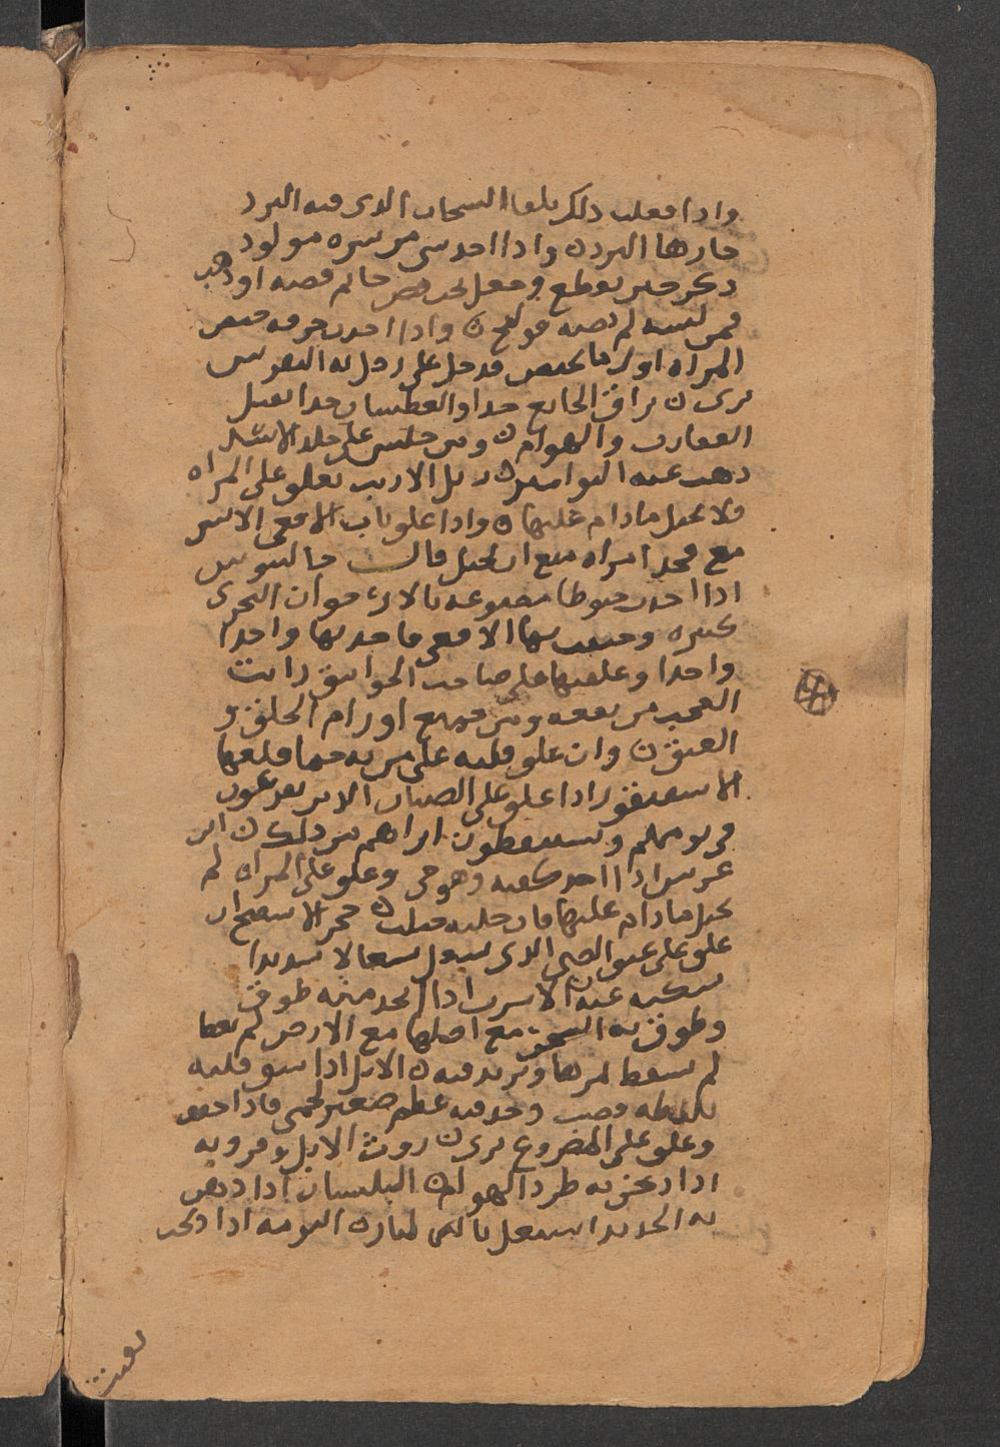 واذا فعلت ذلك تلقا السحاب الذي فيه البرد
جازها البرد ن واذا اخذ شي من سره مولود
ذكر حين يقطع وجعل تحت فص خاتم فضه او ذهب
فمن لبسه لم يصبه قولنج ن واذا اخذت خرقه حيض
المراه اول ما تحيض فدخل على رجل به النقرس
برى ن براق الجايع جدا والعطشان جدا يقتل
العقارب والهوام ن ومن جلس على جلد الاسد
ذهب عنه البواسير ن زبل الارنب يعلق على المراه
فلا تحبل ما دام عليها ن واذا علق ناب الافعى الايسر
مع فخد امراه منع ان تحبل قالت جالينوس
اذا اخذت خيوطا مصبوغه بالارجوان البحري
كثيره وخنقت بها الافعى فاخذتها واحدا
واحدا وعلقتها على صاحب الخوانيق رايت
العجب من نفعه ومن جميع اورام الحلق و
العنق ن وان علق قلبه على من به حما قلعها
الاسقنقور اذا علق على الصبيان الذين يفزعون
في نومهم ويستيقظون ابراهم من ذلك ن ابن
عرس اذا اخذ كعبه وهو حي وعلق على المراه لم
تحبل ما دام عليها فان خليه حبلت ن حجر الاسفنج ان
علق على عنق الصبي الذي يسعل سعالا شديدا
سكنه عنه ن الاسرب اذا اتخذ منه طوق
وطوق به الشجره مع اصلها مع الارض لم يعطا
لم يسقط ثمرها وتزيد فيه ن الايل اذا شق قلبه
وجد فيه عظم صغير لحمي فاذا جفف
وعلق على المصروع برى ن روث الايل وقرونه
اذا دخن به طرد الهوام ن البلسان اذا دهن
به الحديد اشتعل بالنار ن البومه اذا ذبحت